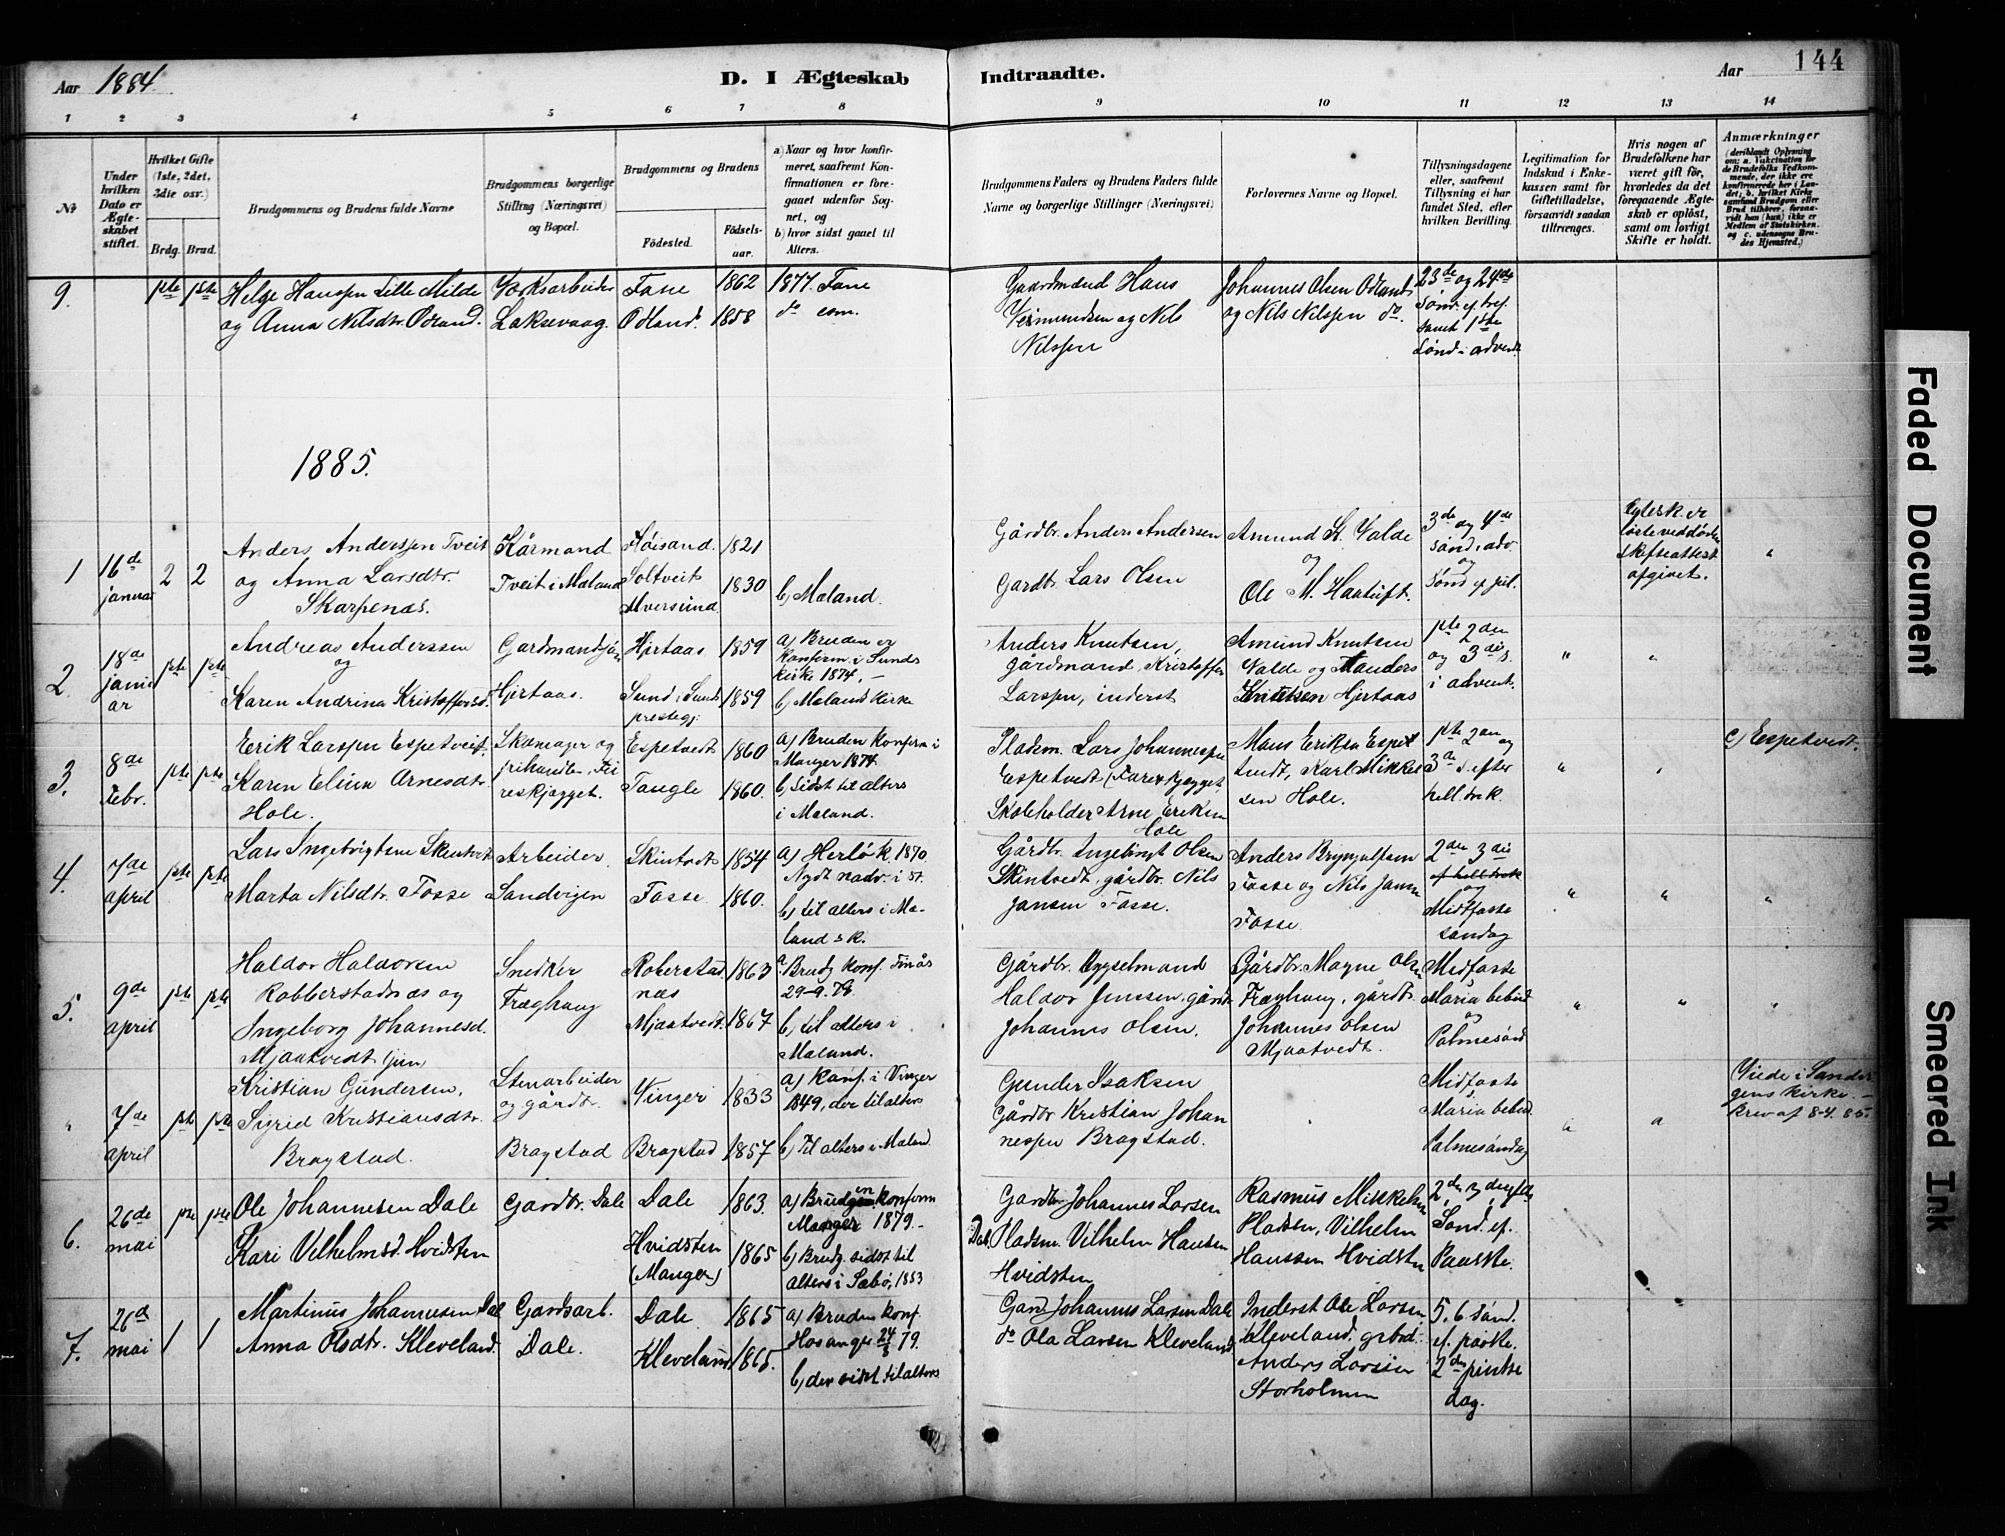 Aar 1884.
D. I Ægteskab Indtraadte.
Aar 144
1 2 3 4 5 6 7 8 9 10 11 12 13 14
№
Under hvilken Dato er Ægteskabet stiftet.
Hvilket Gifte (1ste, 2det, 3die osv.)
Brdg. Brud.
Brudgommens og Brudens fulde Navne
Brudgommens borgerlige Stilling (Næringsvei) og Bopæl.
Brudgommens og Brudens
Födested.
Födselsaar.
a) Naar og hvor konfirmeret, saafremt Konfirmationen er foregaaet udenfor Sognet, og
b) hvor sidst gaaet til Alters.
Brudgommens Faders og Brudens Faders fulde Navne og borgerlige Stillinger (Næringsvei)
Forlovernes Navne og Bopæl.
Tillysningsdagene eller, saafremt Tillysning ei har fundet Sted, efter hvilken Bevilling.
Legitimation for Indskud i Enkekassen samt for Giftetilladelse, forsaavidt saadan tiltrænges.
Hvis nogen af Brudefolkene har været gift før, hvorledes da det foregaaende Ægteskab er oplöst, samt om lovligt Skifte er holdt.
Anmærkninger
9. 1ste 1ste
Helge Hansen Lille Milde
og Anna Nilsdtr. Odland.
Laksevaag.
Fane 1862
Odland. 1858
1877. Fane
do
Gaardmand Hans
og Nils
Nilssen
Johannes Olsen Odland
og Nils Nilssen do.
23de og 24de
Sønd. ef. tref.
samt 1ste
Sønd. i advent
1885.
1 16de januar 2 2
Anders Anderssen Tveit
og Anna Larsdtr.
Skarpenæs.
Kårmand
Tveit i Mæland
1821
1830
b) Mæland.
Gårdbr. Anders Andersen
Gardbr. Lars Olsen
Amund Valde
og
Ole M. Haatuft.
3de og 4de
sønd. i adv.
og
Sønd. ef. jul.
afgivet.
"
2. 18de januar 1ste 1ste
Andreas Anderssen
og
Karen Andrina Kristoffersd.
Hjrtaas.
Hjrtaas 1859
Sund i Sunds
prestegj. 1859
a) Bruden er
konfirm. i Sunds
kirke 1874. –
b) Mælands kirke
Anders Knutsen,
gårdmand, Kristoffer
Larssen, inderst
Amund Knutsen
Valde og Manders
Knutsen Hjrtaas
1ste 2den
og 3die s.
i advent.
" "
3. 8de Febr. 1ste 1ste
Erik Larssen Espetveit
Karen Elina Arnesdtr.
Hole.
Skomager og
Espetvedt 1860
Tangle 1860.
a) Bruden konfirm i
Manger 1874
b) sidst til alters
i Mæland.
Pladsm. Lars Johannessen
Espetvedt
Skoleholder Arne Eriksen
Hole
Mons Eriksen Espet
tvedt, Karl Mikkel
sen Hole.
1ste 2den og
3de s. efter
hell. trek.
"
c) Espetvedt.
4. 7de april 1ste 1ste
Lars Ingebrigtsen Skintvedt
Marta Nilsdtr. Fosse
Arbeider
Sandvigen
Skintvedt 1854
Fosse 1860.
a) Herlö k. 1870.
b) til alters i Mæ-
lands k.
Gårdbr. Ingebrigt Olsen
Skintvedt, gårdbr. Nils
Jansen Fosse.
Anders Brynjulfsen
Fosse og Nils Jansen
Fosse
2den 3die
ef. hell. trek
og
Midtfaste
søndag
" " "
5. 9de april 1ste 1ste
Haldor Haldorsen
Robberstadnæs og
Ingeborg Johannesd.
Mjaatvedt
Snedker
Fræghaug
Roberstad
næs 1863
Mjaatvedt 1867
a. Brudg. konf.
29–9–79
b) til alters i
Mæland.
Gårdbr.
Haldor Jenssen, gårdbr.
Johannes Olsen.
Gårdbr. Magne Olsen
Fræghaug, gårdbr.
Johannes Olsen
Mjaatvedt.
Midfaste
Maria bebud.
og
Palmesønd
" " "
" 7de april 1ste 1ste
Kristian Gundersen,
Sigrid Kristiansdtr.
Bragstad.
Stenarbeider
og gårdbr.
Bragstad
Vinger 1833
Bragstad 1857
a) konf. i Vinger
1849, der til alters
b) til alters i Mæland.
Gunder Isaksen
Gårdbr Kristian Johan
nessen Bragstad.
Midfaste
Maria bebud.
Palmesøndag
" "
Viede i Sandvi
gens kirke. –
Brev af 8-4. 85.
6. 26de mai 1ste 1ste
Ole Johannesen Dale
Kari Vilhelmsd. Hvidsten
Gardbr. Dale
Dale 1863.
Hvidsten
(Manger) 1865
a) Bruden konfirm
Manger 1879. –
b) Brudg. sidst til
alters i Sæbö, 1883
Gardbr Johannes Larsen
Dale, Pladsm. Vilhelm Hansen
Hvidsten
Rasmus Mikkelsen
Pladsen, Vilhelm
Hanssen Hvidsten
Sønd. ef.
Paaske.
7. 26d mai 1 1
Martinus Johannesen Dale
Anna Olsdtr. Kleveland.
Gardsarb.
Dale.
Dale 1865
Kleveland 1865.
a) Bruden konf.
Hosanger 24/8 79.
b) der sidst til alters
Gard. Johannes Larsen Dale
do Ola Larsen Kleveland
Inderst Ole Larsen
Kleveland, grbd.
Anders Larsen
Storholmen
5. 6. sønd.
ef. paaske.
2den pintse
dag.
Faded Document
Smeared Ink